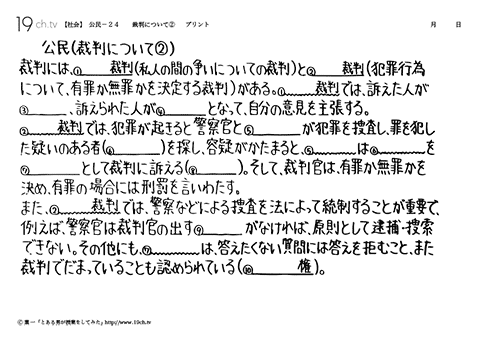 19 ch.tv 【社会】 公民－24 裁判について② プリント 月 日
公民(裁判について②)
裁判には、① 裁判(私人の間の争いについての裁判)と② 裁判(犯罪行為
について、有罪か無罪かを決定する裁判)がある。① 裁判では、訴えた人が
③ 、訴えられた人が④ となって、自分の意見を主張する。
② 裁判では、犯罪が起きると警察官と⑤ が犯罪を捜査し、罪を犯し
た疑いのある者(⑥ )を探し、容疑がかたまると、⑤ は⑥ を
⑦ として裁判に訴える(⑧ )。そして、裁判官は、有罪か無罪かを
決め、有罪の場合には刑罰を言いわたす。
また、② 裁判では、警察などによる捜査を法によって統制することが重要で、
例えば、警察官は裁判官の出す⑨ がなければ、原則として逮捕・捜索
できない。その他にも、⑦ は、答えたくない質問には答えを拒むこと、また
裁判でだまっていることも認められている(⑩ 権)。
© 葉一「とある男が授業をしてみた」 http://www.19ch.tv